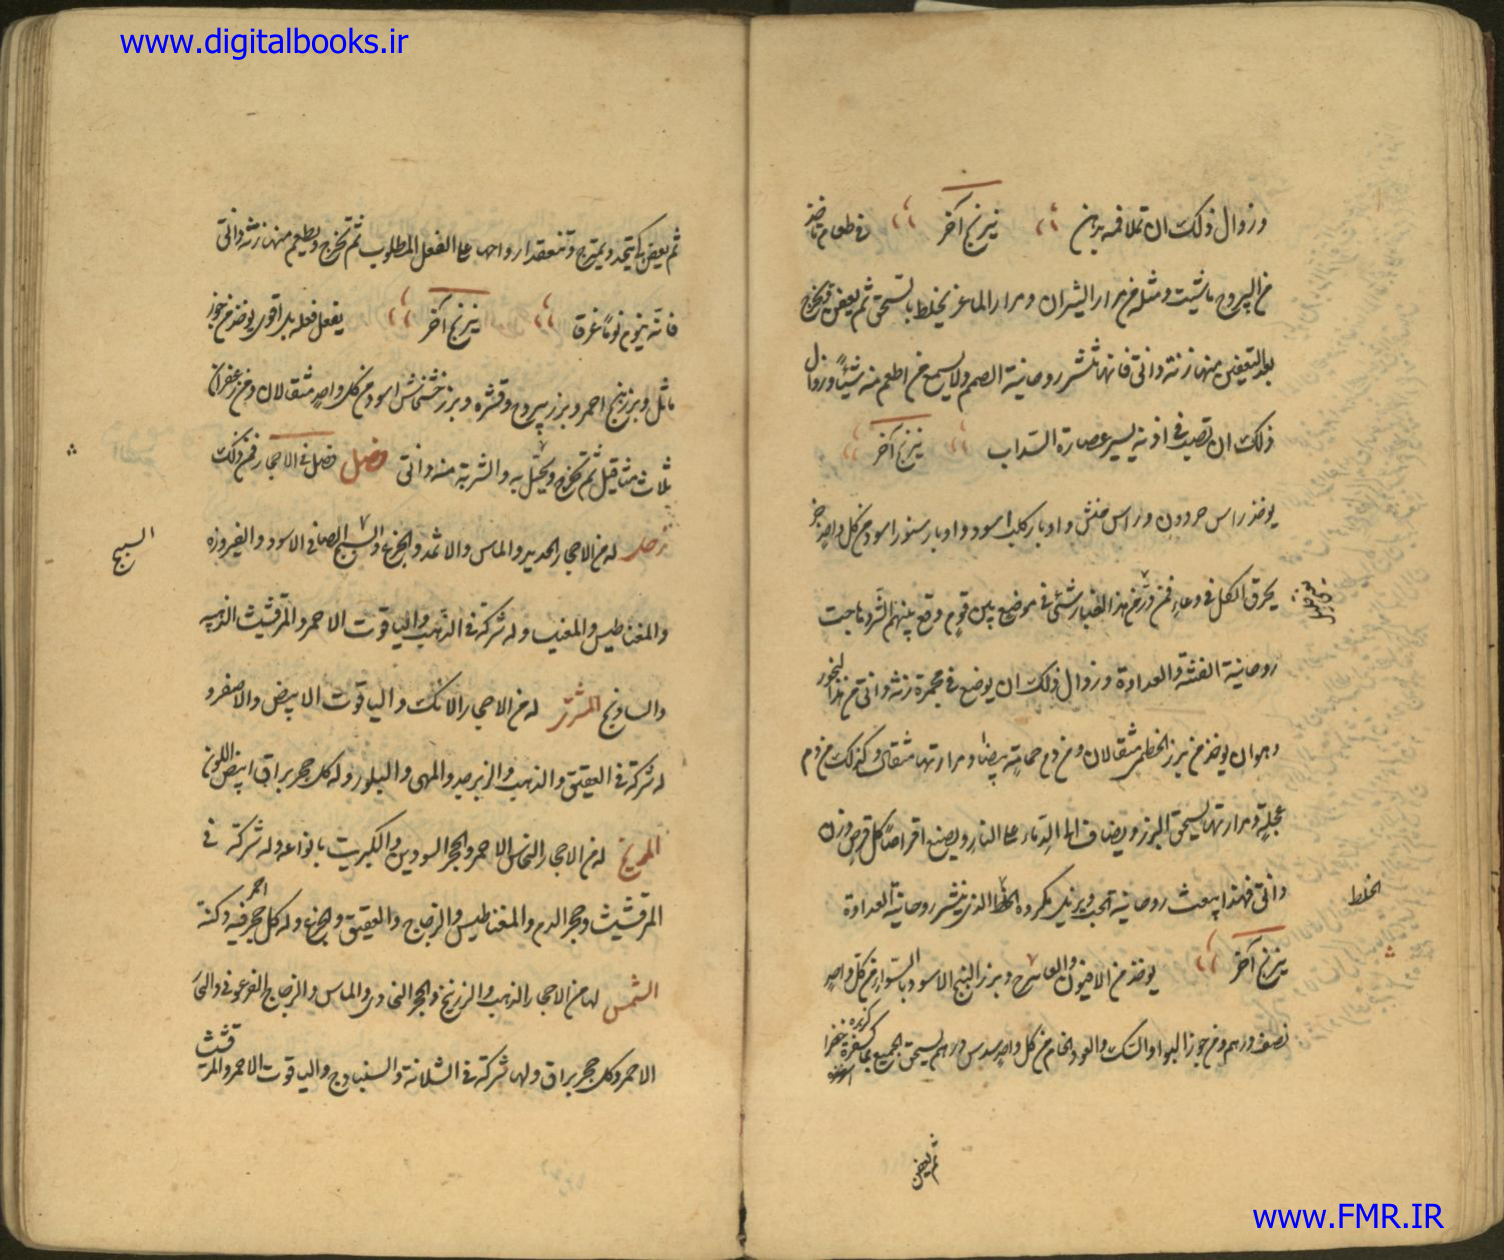 www.digitalbooks.ir
وزوال ذلك ان تملا فمه بدهن نيرنج آخر في طعام ياخذ
من اليبروح ماشيت ومثله من مرار الثيران ومرار الماعز يخلط بالسحق ثم يعفن ويخرج
بعد التعفين منها زنة دانق فانها تنشر روحانية الصمم ولا يسمع من اطعم منه شيئا وزوال
ذلك ان تصب في اذنيه يسير عصارة السداب نيرنج آخر
يوخذ راس حردون وراس خفش واوبار كلب اسود واوبار سنور اسود من كل واحد جز
يحرق الكل في وعاء فمن هذا الغبار شئ في موضع بين قوم وقع بينهم الشر وهاجت
روحانية الفتنة والعداوة وزوال ذلك ان يوضع في مجمرة زنة دانق من هذا البخور
وهو ان يوخذ من بزر الخطمى مثقالان ومن دم حمامة بيضا ومرارتها مثقال وكذلك من دم
عجلة ومرارتها يسحق البزر ويضاف الى الدماء على النار ويصنع اقراصا كل قرص وزن
دانق فهذا يبعث روحانية الحب ويزيل مكروه الخلط الذى ينشر روحانية العداوة
الخلط
نيرنج آخر يوخذ من الافيون و وبزر البنج الاسود بالسوا من كل واحد
نصف درهم ومن جوز البوا والسك والعود الخام من كل واحد سدس درهم يسحق الجميع بماء كسفرة خضرا
كزبره
ثم يعفن
ثم يعفن كى يتحد ويمتزج وتنعقد ارواحها على الفعل المطلوب ثم تخرج ويطعم منها زنة دانق
فانه ينوم نوما غرقا نيرنج آخر يفعل فعله بل اقوى يوخذ من جوز
ماثل وبزر بنج احمر وبزر يبروح وقشره وبزر خشخاش اسود من كل واحد مثقالان ومن زعفران
ثلاث مثاقيل ثم تخرج ويحتل به والشربة منه دانق فصل فصل في الاحجار فمن ذلك
زحل له من الاحجار الحديد والماس والاثمد والجزع والسبج الصافى الاسود والفيروزه
السبج
والمغناطيس والمغنيسا وله شركة في الذهب والياقوت الاحمر والمرقشيث الذهبيه
والساونج المشترى له من الاحجار الانك والياقوت الابيض والاصفر و
له شركة في العقيق والذهب والزبرجد والمهى والبلور وله كل حجر براق ابيض اللون
المريخ له من الاحجار النحاس الاحمر والحجر السودين والكبريت بانواعه وله شركة في
المرقشيث وحجر الدم والمغناطيس والزجاج والعقيق والجزع وله كل حجر احمر فيه دكنة
الشمس لها من الاحجار الذهب والزرنيخ والحجر والماس والزجاج الفرعونى
الاحمر وكل حجر براق ولها شركة في الشلانة والسنبادج والياقوت الاحمر والمرقشيث
www.FMR.IR